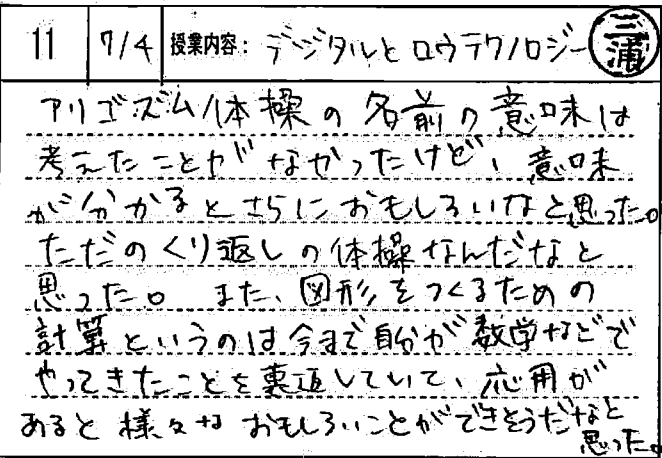 11 7/4 授業内容: デジタルとロウテクノロジー 三浦
アリゴズム体操の名前の意味は
考えたことがなかったけど、意味
が分かるとさらにおもしろいなと思った。
ただのくり返しの体操なんだなと
思った。また、図形をつくるための
計算というのは今まで自分が数学などで
やってきたことを裏返していて、応用が
あると様々なおもしろいことができそうだなと
思った。